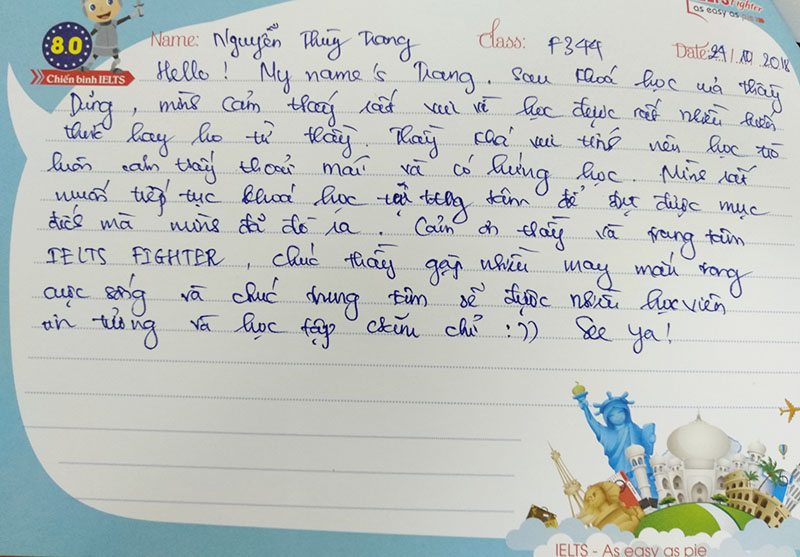 Fighter
as easy as pie
8.0
Chiến binh IELTS
Name: Nguyễn Thùy Trang Class: F344 Date: 29/10/2018
Hello! My name's Trang. Sau khoá học mà thầy
Dũng, mình cảm thấy rất vui vì học được rất nhiều kiến
thức hay ho từ thầy. Thầy khá vui tính nên học trò
luôn cảm thấy thoải mái và có hứng học. Mình rất
muốn tiếp tục khoá học tại trung tâm để đạt được mục
đích mà mình đã đề ra. Cảm ơn thầy và trung tâm
IELTS FIGHTER, chúc thầy gặp nhiều may mắn trong
cuộc sống và chúc trung tâm sẽ được nhiều học viên
tin tưởng và học tập chăm chỉ :)) See ya!
IELTS - As easy as pie